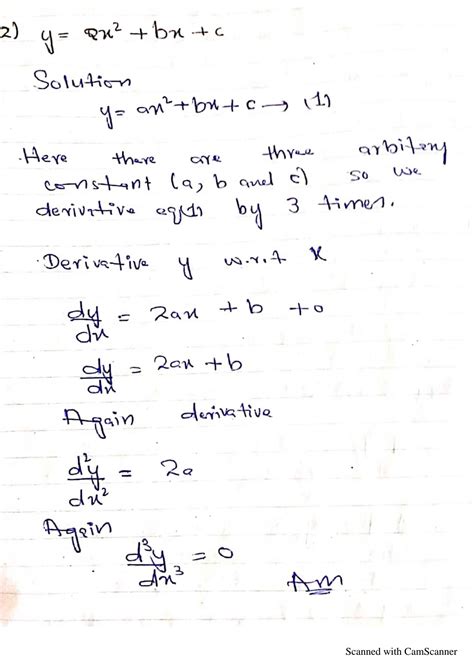 2) y = ax² + bx + c
Solution
y = ax² + bx + c → (1)
Here there are three arbitery
constant (a, b and c) so we
derivative eq(1) by 3 times.
Derivative y w.r.t x
dy/dx = 2ax + b + 0
dy/dx = 2ax + b
Again derivative
d²y/dx² = 2a
Again
d³y/dx³ = 0
Ans
Scanned with CamScanner